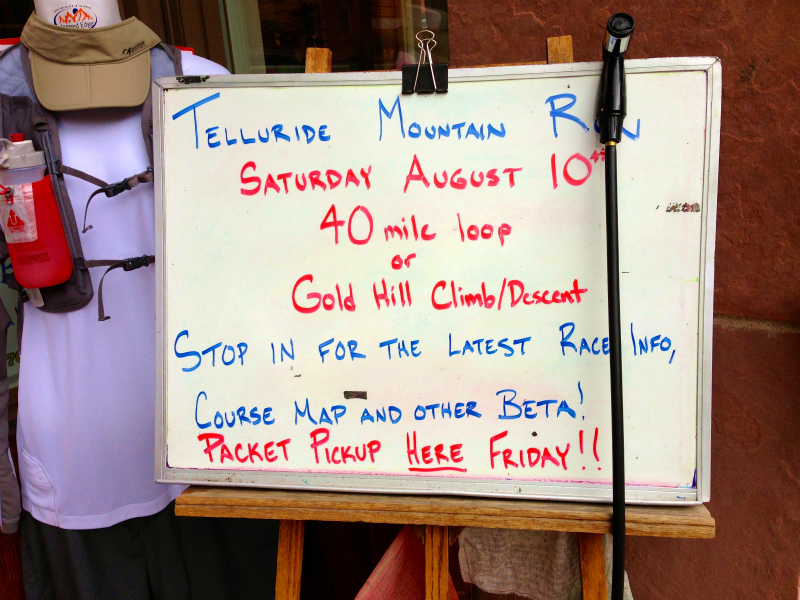 Jagged Edge
TELLURIDE MOUNTAIN RUN
SATURDAY AUGUST 10th
40 mile loop
or
Gold Hill Climb/Descent
STOP IN FOR THE LATEST RACE INFO,
COURSE MAP AND OTHER BETA!
PACKET PICKUP HERE FRIDAY!!